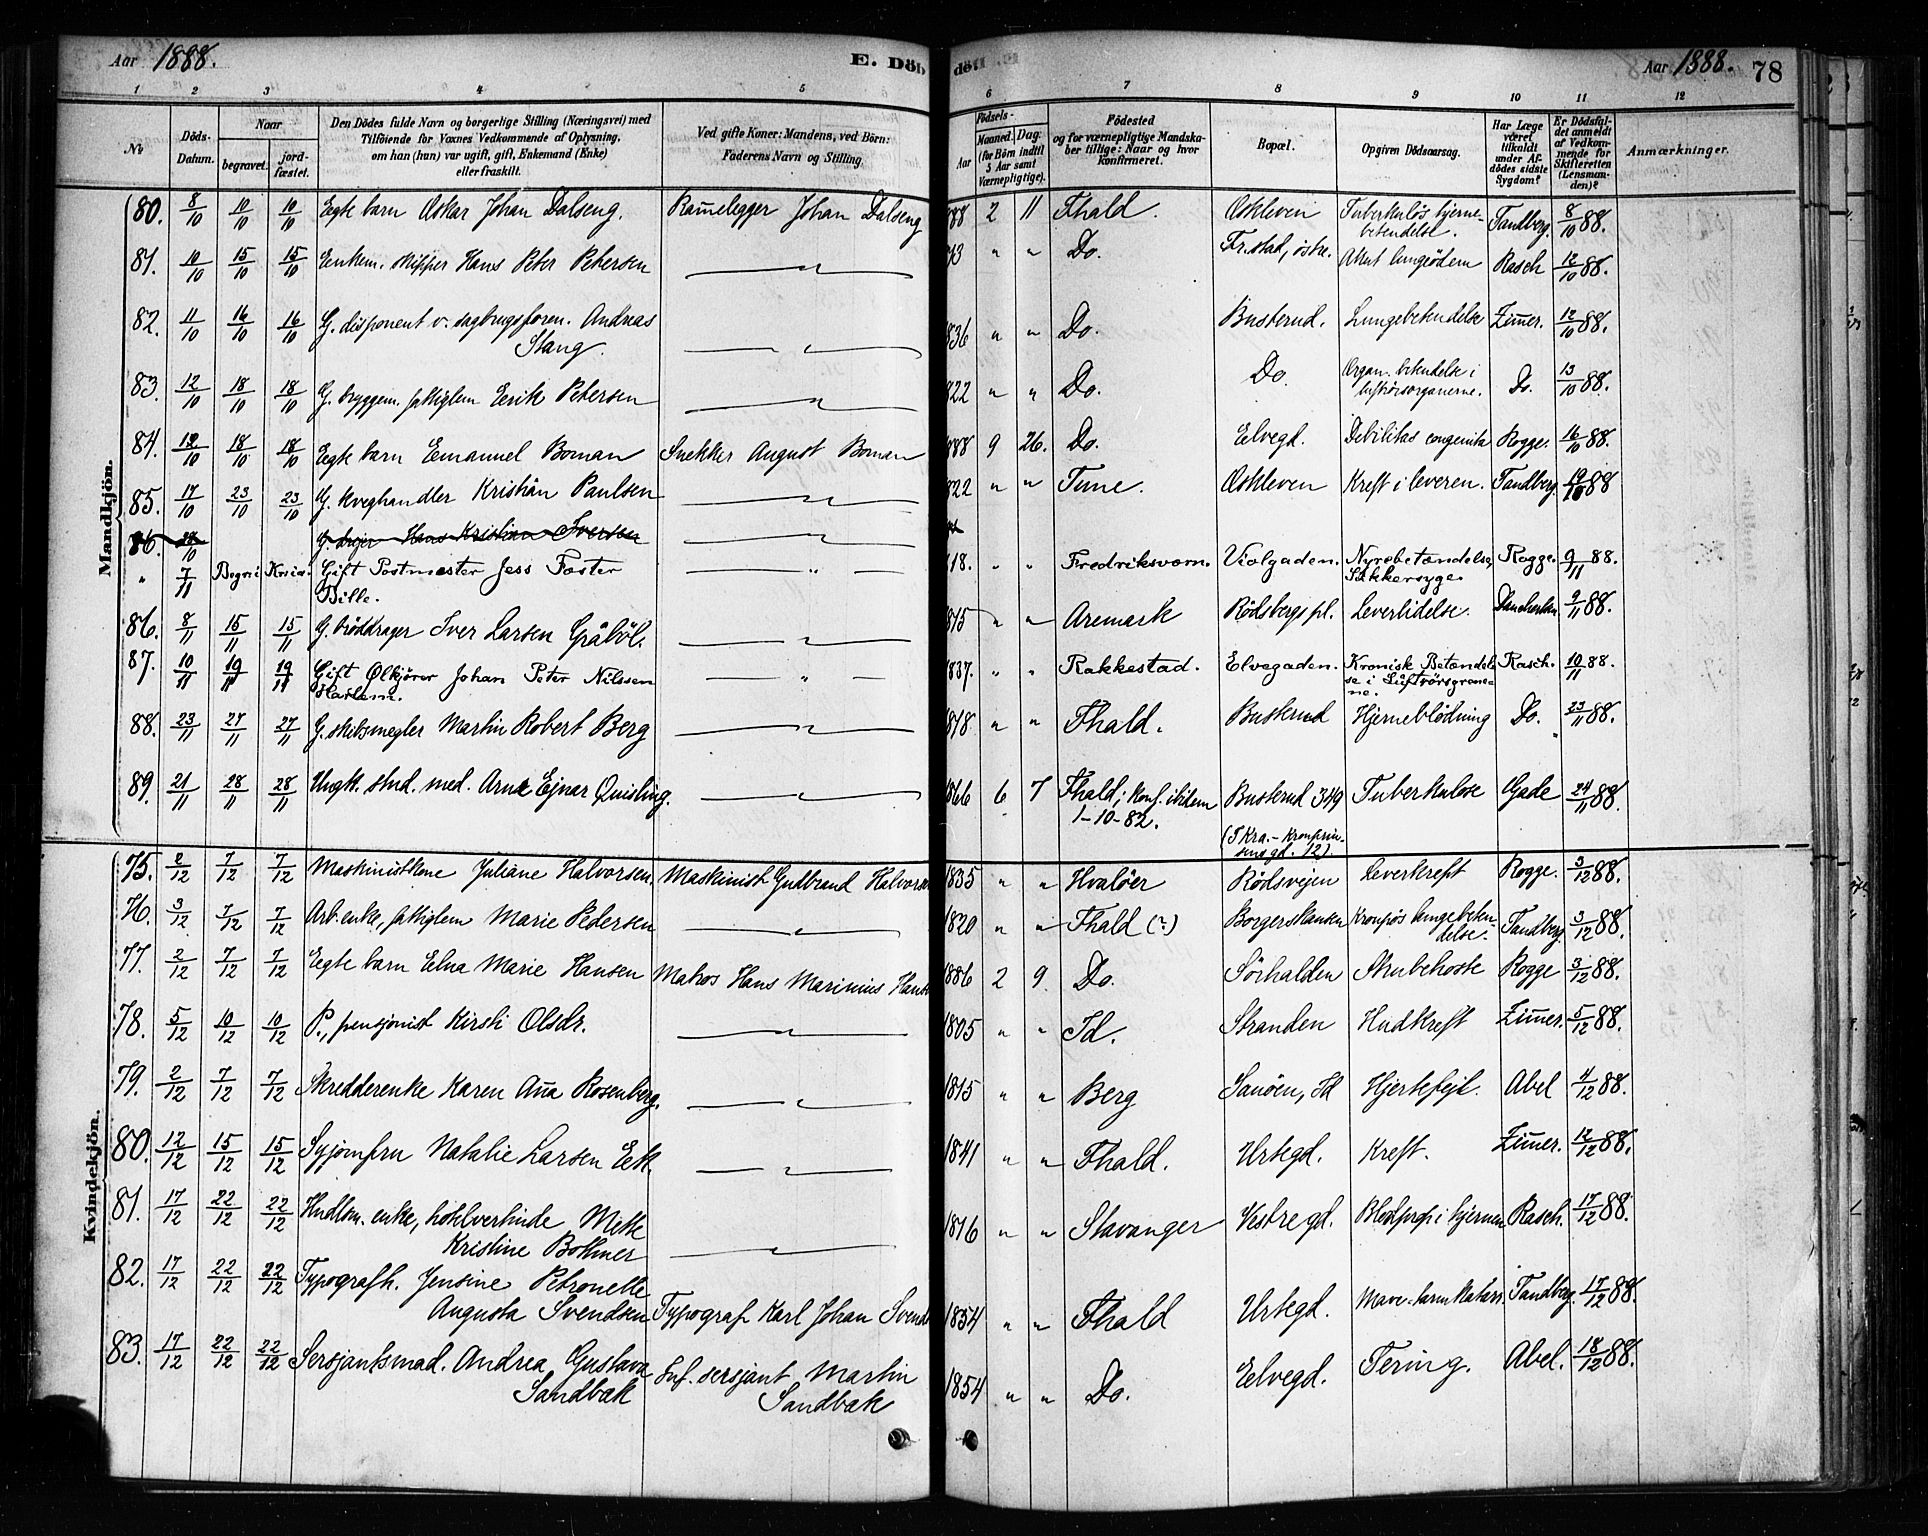 Aar 1888.
E. Döb
1 2 3 4 5
No
Döds-Datum.
Naar
begravet.
jord-fæstet.
Den Dödes fulde Navn og borgerlige Stilling (Næringsvei) med
Tilföiende for Voxnes Vedkommende af Oplysning,
om han (hun) var ugift, gift, Enkemand (Enke)
eller fraskilt.
Ved gifte Koner: Mandens, ved Börn:
Faderens Navn og Stilling.
Aar 1888. 78
6 7 8 9 10 11 12
Födsels-
Aar
Maaned.
Dag
(for Börn indtil
5 Aar samt
Værnepligtige).
Födested
og for værnepligtige Mandska-
ber tillige: Naar og hvor
konfirmeret.
Bopæl.
Opgiven Dödsaarsag.
Har Læge
været
tilkaldt
under Af-
dödes sidste
Sygdom?
Er Dödsfal-
det anmeldt
af Vedkom-
mende for
Skifteretten
(Lensman-
den)?
Anmærkninger.
Mandkjön.
80. 8/10 10/10 10/10 Egte barn Oskar Johan Dalseng. Rammelegger Johan Dalseng 888 2 11 Fhald. Oskleven Tuberkuløs hjerne-
betendelse. Tandberg. 8/10 88.
81. 10/10 15/10 15/10 Enkem. skipper Hans Peter Petersen — " — " " Do. Fr.stad, østre. Akut lungeødem Rasch 12/10 88.
82. 11/10 16/10 16/10 G. disponent v. sagbrugsforen. Andreas
Stang. — " — 836 " " Do. Buskerud. Lungebetendelse Zimmer. 12/10 88.
83. 12/10 18/10 18/10 G. bryggem. fattiglem Eerik Petersen — " — 822 " " Do. Do. Organ. betendelse i
luftrørsorganerne. Do. 13/10 88.
84. 12/10 18/10 18/10 Egte barn Emanuel Boman Snekker August Boman 888 9 26. Do. Elvegd. Debilitas congenita Rogge. 16/10 88.
85. 17/10 23/10 23/10 G. kveghandler Kristian Paulsen — " — 822 " " Tune. Oskleven Kreft i leveren. Tandberg. 19/10 88
86. 28/10 Hans Kristian Iversen — " —
" 7/11 Gift Postmester Jess Foster
Bille. — " — 818. " " Fredriksvern. Violgaden. Nyrebetændelse,
Sukkersyge. Rogge. 9/11 88.
86. 8/11 15/11 15/11 G. brøddrager Iver Larsen Gråbøl. — " — 1815 " " Aremark Rødsbergspl. Leverlidelse. 9/11 88.
87. 10/11 19/11 19/11 Gift Ølkjører Johan Peter Nilssen
Harlem. — " — 1837. " " Rakkestad. Elvegaden. Kronisk Betændel-
se i Luftrørsgrene-
ne. Rasch. 10/11 88.
88. 23/11 27/11 27/11 G. skibsmegler Martin Robert Berg — " — 1818. " " Fhald. Buskerud Hjerneblødning Do. 23/11 88.
89. 21/11 28/11 28/11 Ungk. stud. med. Arne Ejnar Quisling. — " — 1866 6 7 Fhald; konf. ibidem
1-10-82. Buskerud 349
(I Kra. - Kronprin-
sensgd. 12). Tuberkulose Gade 24/11 88.
Kvindekjön.
75. 2/12 7/12 7/12 Maskinistkone Juliane Halvorsen. Maskinist Gulbrand Halvorsen 1835 " " Hvaløer Rødsvejen Leverkreft Rogge. 3/12 88.
76. 3/12 7/12 7/12 Arb.enke, fattiglem Marie Pedersen — " — 1820 " " Fhald (?) Borgerskansen Krupøs lungebeten-
delse. Tandberg. 3/12 88.
77. 2/12 7/12 7/12 Egte barn Elna Marie Hansen Matros Hans Marinius Hansen 1886 2 9. Do. Sørhalden Strubehoste Rogge 3/12 88.
78. 5/12 10/12 10/12 P., pensjonist Kirsti Olsdr. — " — 1805 " " Id. Stranden Hudkreft Zimmer. 5/12 88.
79. 2/12 7/12 7/12 Skredderenke Karen Anna Rosenberg. — " — 1815 " " Berg Sauøen, Id Hjertefejl. Abel 4/12 88.
80. 12/12 15/12 15/12 Syjomfru Natalie Larsen Eek. — " — 1841 " " Fhald. Urtegd. Kreft. Zimmer. 12/12 88.
81. 17/12 22/12 22/12 Hndlsm. enke, hotelvertinde, Mette
Kristine Bothner — " — 1816 " " Stavanger Vestregd. Blodprop i hjernen Rasch. 17/12 88.
82. 17/12 22/12 22/12 Typografk. Jensine Petronelle
Augusta Svendsen Typograf Karl Johan Svends 1854 " " Fhald Urtegd. Mave-tarmkatarr. Tandberg. 17/12 88.
83. 17/12 22/12 22/12 Sersjantsmad. Andrea Gustava
Sandbak Inf. sersjant Martin
Sandbak 1854 " " Do. Elvegd. Tering. Abel. 18/12 88.